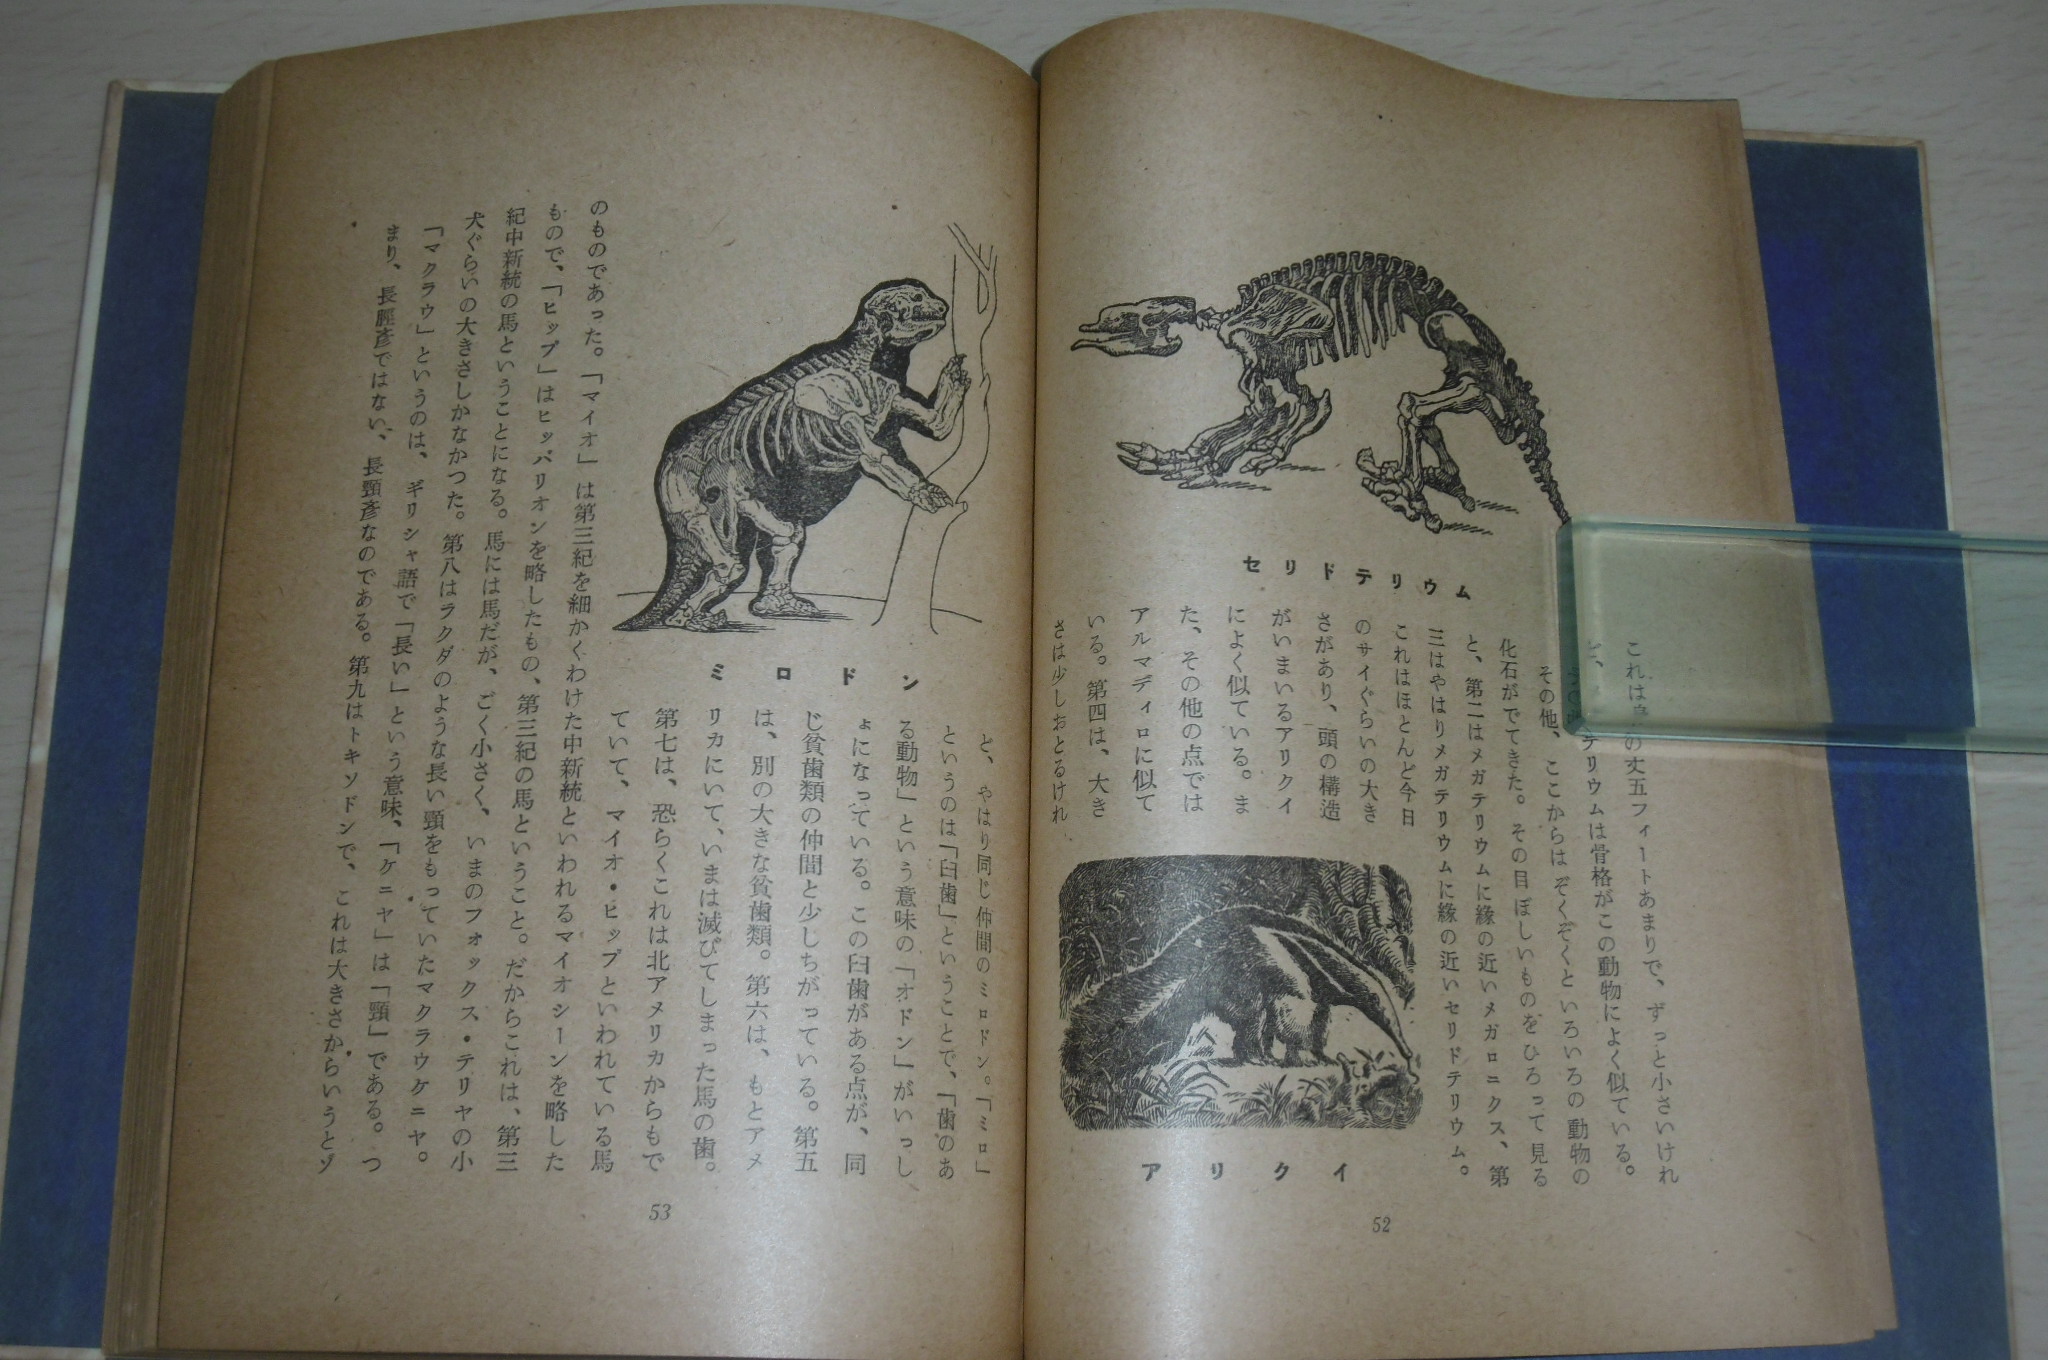 これは身の丈五フィートあまりで、ずっと小さいけれ
テリウムは骨格がこの動物によく似ている。
その他、ここからはぞくぞくといろいろの動物の
化石がでてきた。その目ぼしいものをひろって見る
と、第二はメガテリウムに緣の近いメガロニクス、第
三はやはりメガテリウムに緣の近いセリドテリウム。
これはほとんど今日
のサイぐらいの大き
さがあり、頭の構造
がいまいるアリクイ
によく似ている。ま
た、その他の点では
アルマディロに似て
いる。第四は、大き
さは少しおとるけれ
セリドテリウム
アリクイ
52
ど、やはり同じ仲間のミロドン。「ミロ」
というのは「臼歯」ということで、「歯のあ
る動物」という意味の「オドン」がいっし
ょになっている。この臼歯がある点が、同
じ貧歯類の仲間と少しちがっている。第五
は、別の大きな貧歯類。第六は、もとアメ
リカにいて、いまは滅びてしまった馬の歯。
第七は、恐らくこれは北アメリカからもで
ていて、マイオ・ヒップといわれている馬
のものであった。「マイオ」は第三紀を細かくわけた中新統といわれるマイオシーンを略した
もので、「ヒップ」はヒッパリオンを略したもの、第三紀の馬ということ。だからこれは、第三
紀中新統の馬ということになる。馬には馬だが、ごく小さく、いまのフォックス・テリヤの小
犬ぐらいの大きさしかなかつた。第八はラクダのような長い頸をもっていたマクラウケニヤ。
「マクラウ」というのは、ギリシャ語で「長い」という意味、「ケニヤ」は「頸」である。つ
まり、長脛彥ではない、長頸彥なのである。第九はトキソドンで、これは大きさからいうとゾ
ミロドン
53